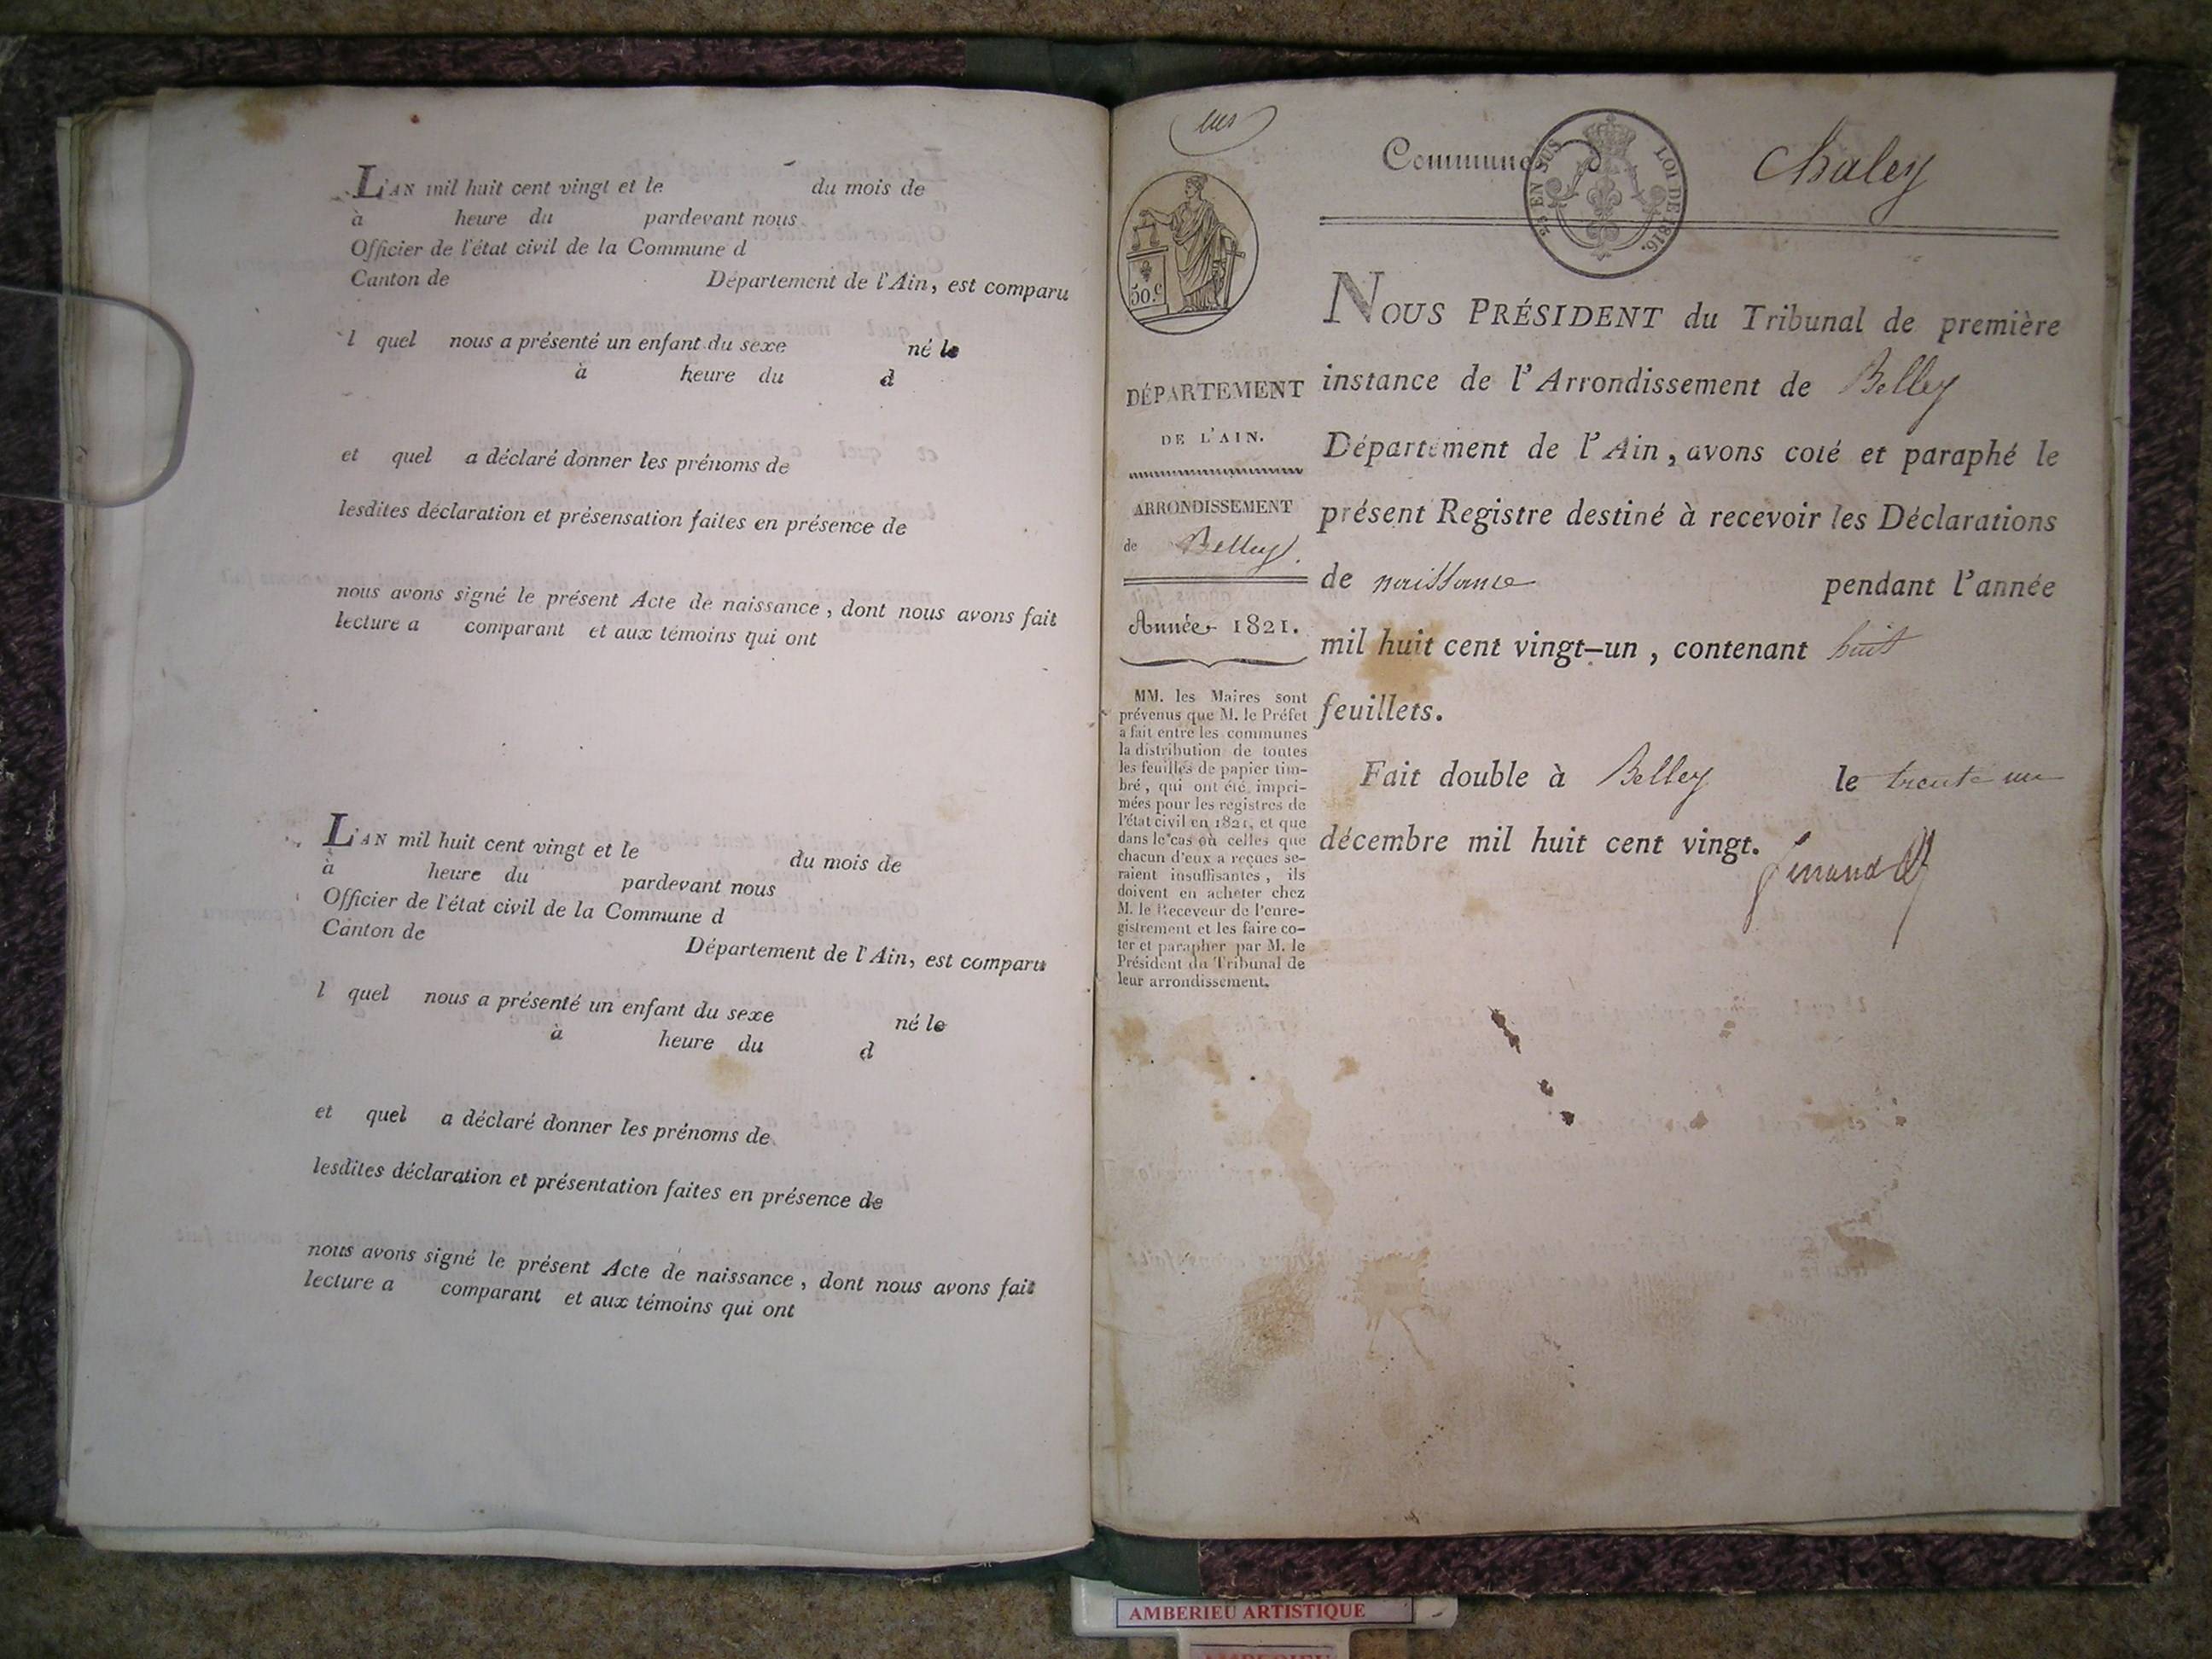 L'AN mil huit cent vingt et le du mois de
à heure du pardevant nous
Officier de l'état civil de la Commune d
Canton de Département de l'Ain, est comparu
l quel nous a présenté un enfant du sexe né le
à heure du d
et quel a déclaré donner les prénoms de
lesdites déclaration et présensation faites en présence de
nous avons signé le présent Acte de naissance, dont nous avons fait
lecture a comparant et aux témoins qui ont
L'AN mil huit cent vingt et le du mois de
à heure du pardevant nous
Officier de l'état civil de la Commune d
Canton de Département de l'Ain, est comparu
l quel nous a présenté un enfant du sexe né le
à heure du d
et quel a déclaré donner les prénoms de
lesdites déclaration et présentation faites en présence de
nous avons signé le présent Acte de naissance, dont nous avons fait
lecture a comparant et aux témoins qui ont
Commune d Chaley
EN SUS LOI DE 1816.
50.c
DÉPARTEMENT
DE L'AIN.
ARRONDISSEMENT
de Belley.
Année 1821.
MM. les Maires sont
prévenus que M. le Préfet
a fait entre les communes
la distribution de toutes
les feuilles de papier tim-
bré, qui ont été impri-
mées pour les registres de
l'état civil en 1821, et que
dans le cas où celles que
chacun d'eux a reçues se-
raient insuffisantes, ils
doivent en acheter chez
M. le Receveur de l'enre-
gistrement et les faire co-
ter et parapher par M. le
Président du Tribunal de
leur arrondissement.
NOUS PRÉSIDENT du Tribunal de première
instance de l'Arrondissement de Belley
Département de l'Ain, avons coté et paraphé le
présent Registre destiné à recevoir les Déclarations
de naissance pendant l'année
mil huit cent vingt-un, contenant huit
feuillets.
Fait double à Belley le trente un
décembre mil huit cent vingt.
AMBERIEU ARTISTIQUE
AMBERIEU